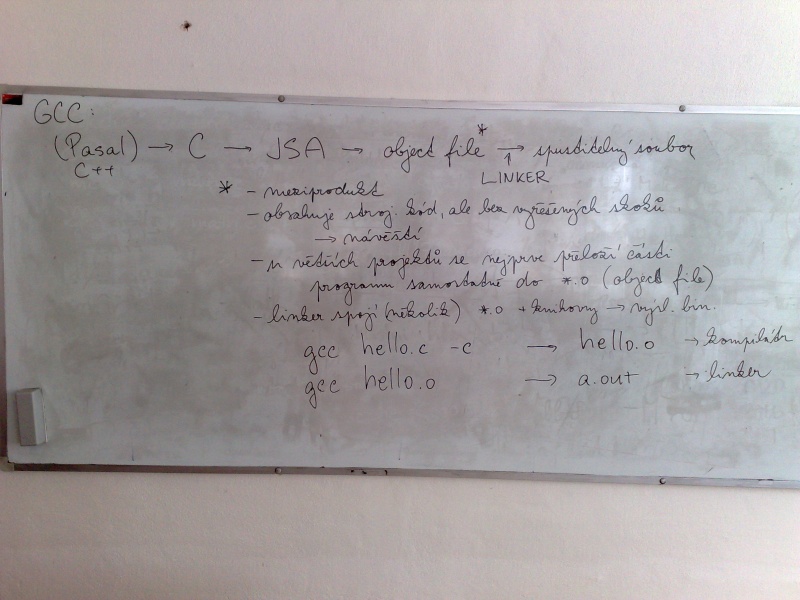 GCC:
(Pasal) → C → JSA → object file* → spustitelný soubor
C++
↑
LINKER
* - meziprodukt
- obsahuje stroj. kód, ale bez vyřešených skoků
→ návěští
- u větších projektů se nejprve přeloží části
programu samostatně do *.o (object file)
- linker spojí (několik) *.o + knihovny → výsl. bin.
gcc hello.c -c → hello.o → kompilátr
gcc hello.o → a.out → linker